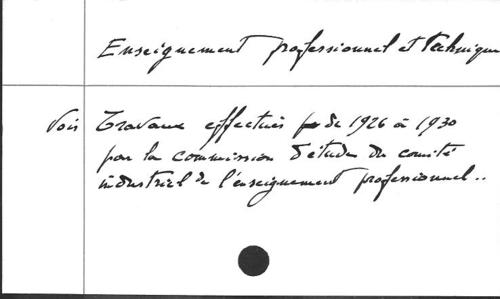 Enseignement professionnel et technique
Voir Travaux effectués de 1926 à 1930
par la commission d'études du comité
industriel de l'enseignement professionnel..